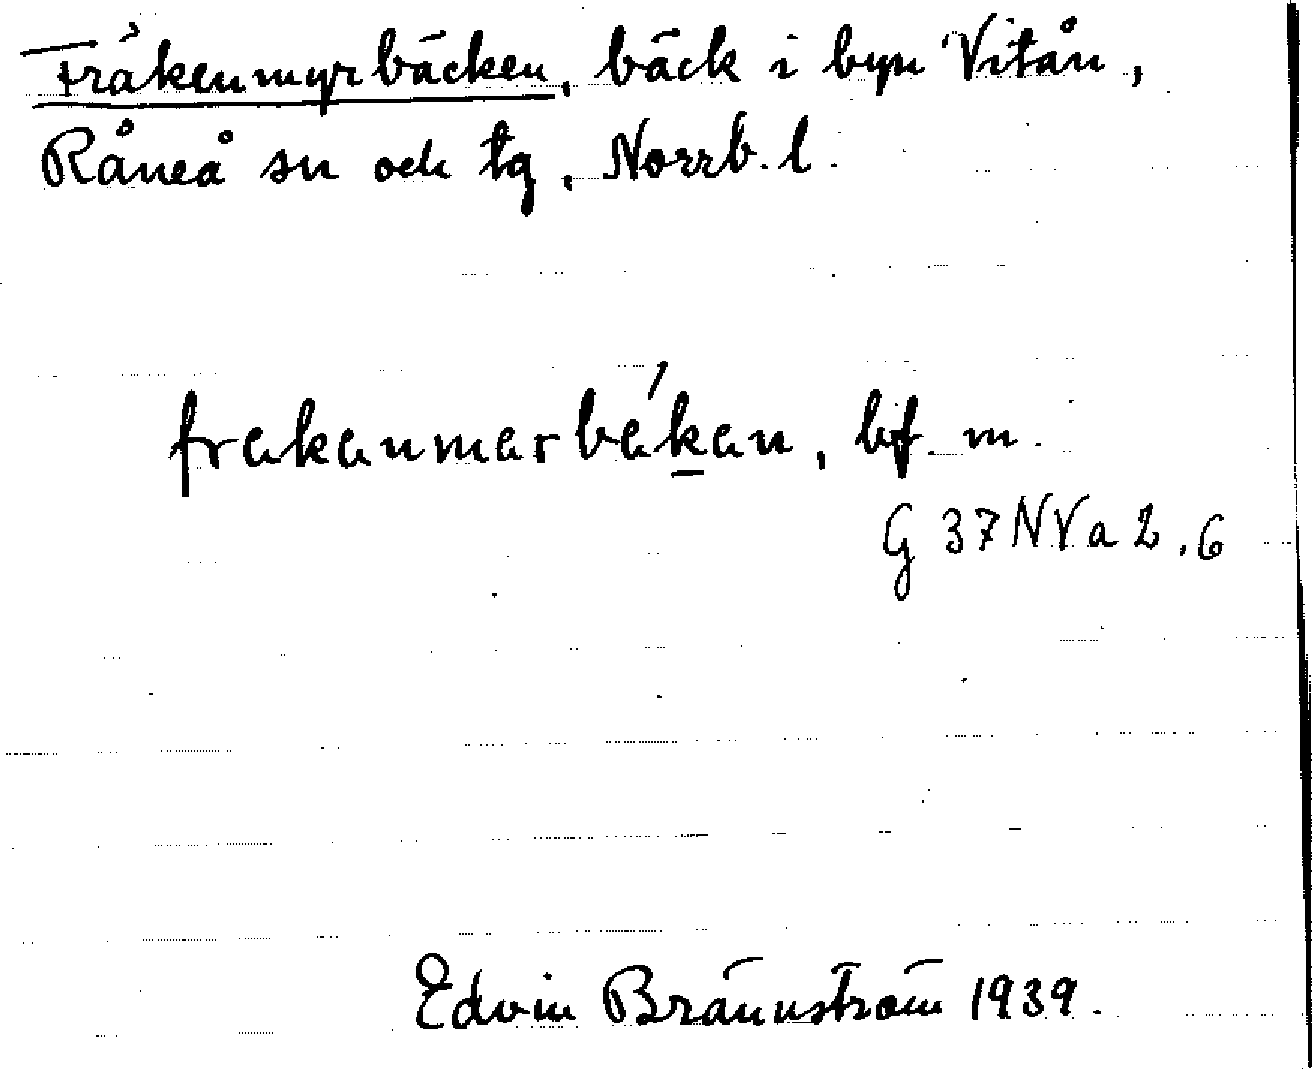 Fräkenmyrbäcken, bäck i byn Vitån,
Råneå sn och tg, Norrb. l.
frakanmarbákan, bf. m.
G 37 NV a 2, 6
Edvin Brännström 1939.